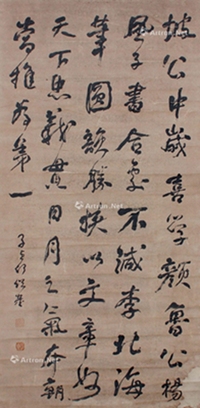 坡公中歲喜學顏魯公楊
風子書合處不減李北海
筆圓韻勝挾以文章妙
天下忠義貫日月之氣本朝
當推為第一
子貞何紹基